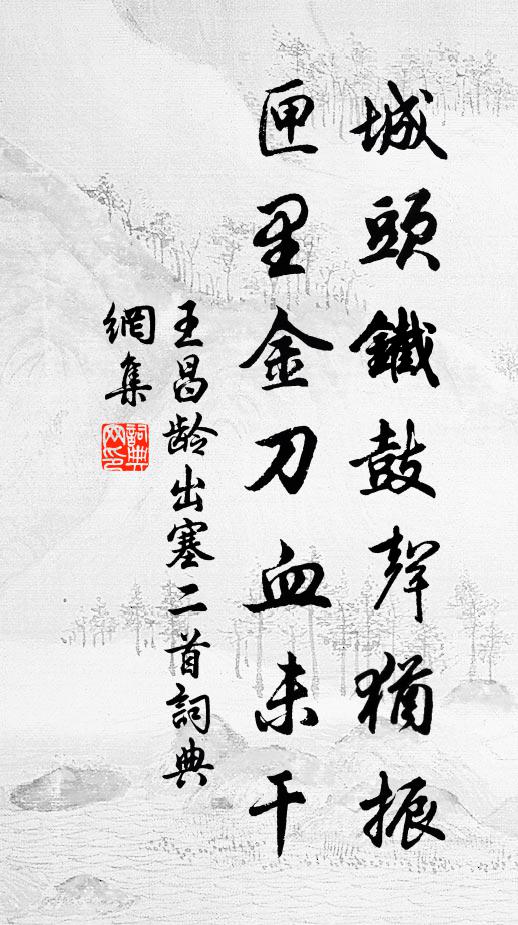 城頭鐵鼓聲猶振
匣里金刀血未干
王昌龄出塞二首詞典
網集
詞典
网印